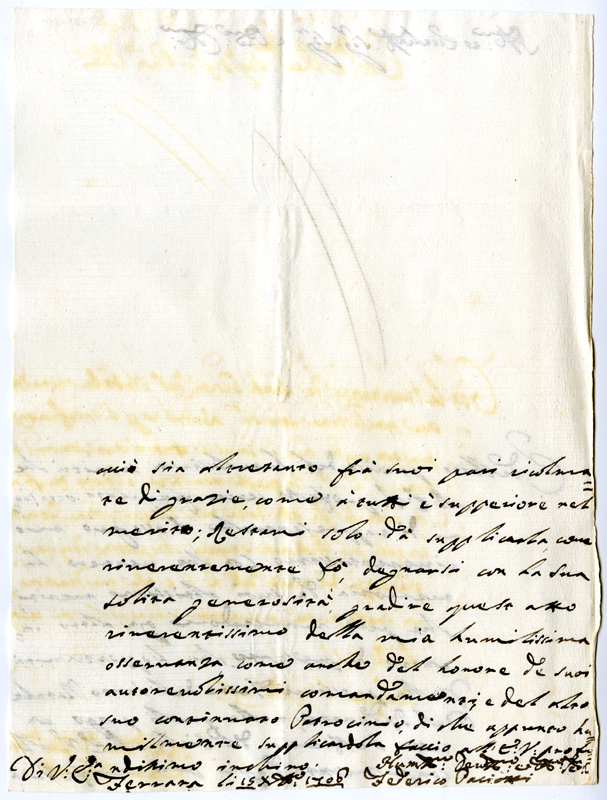 acciò sia altretanto frà suoi pari ricolma=
te di grazie, come à tutti è supperiore nel
merito; Restami solo dà supplicarla, come
riverentemente fò, degnarsi con la sua
solita generosità, gradire quest atto
riverentissimo della mia humilissima
osservanza come anche del honore de suoi
autorevolissimi comandamenti, e del altro
suo continuato Patrocinio, di che appunto hu
milmente supplicandola faccio all' E.V. profon=
ndissimo inchino.
Di V. E.za
Ferrara li 15 Xbre 1706
Federico Paciotti